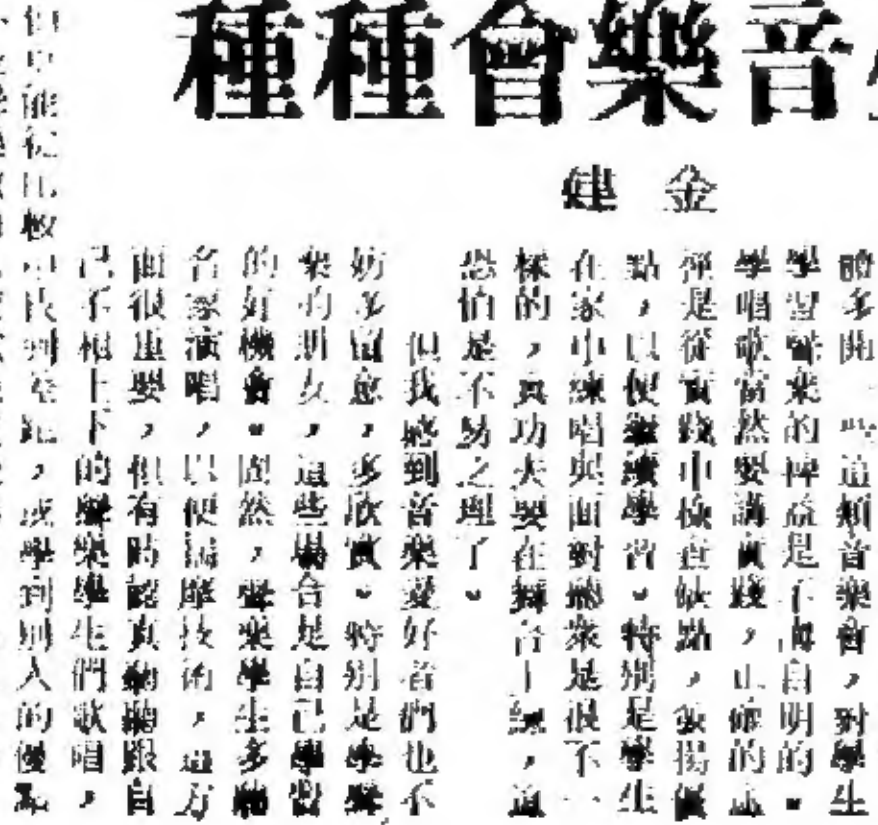 音樂會種種
金建
體多開一些這類音樂會，對學生
學習聲樂的裨益是不講自明的。
學唱歌當然要講實踐，正確的
是從實踐中檢查缺點，發揚優
點，以便繼續學習。特別是學生
在家中練唱與面對聽衆是很不一
樣的，真功夫要在舞台上練，這
恐怕是不易之理了。
但我感到音樂愛好者們也不
妨多留意，多欣賞。特別是學聲
樂的朋友，這些場合是自己學習
的好機會。固然，聲樂學生多聽
名家演唱，以便揣摩技術，這方
面很重要，但有時認真的聽聽跟自
己不相上下的聲樂學生們歌唱，
但更能從比較中找到差距，或學到別人的優點